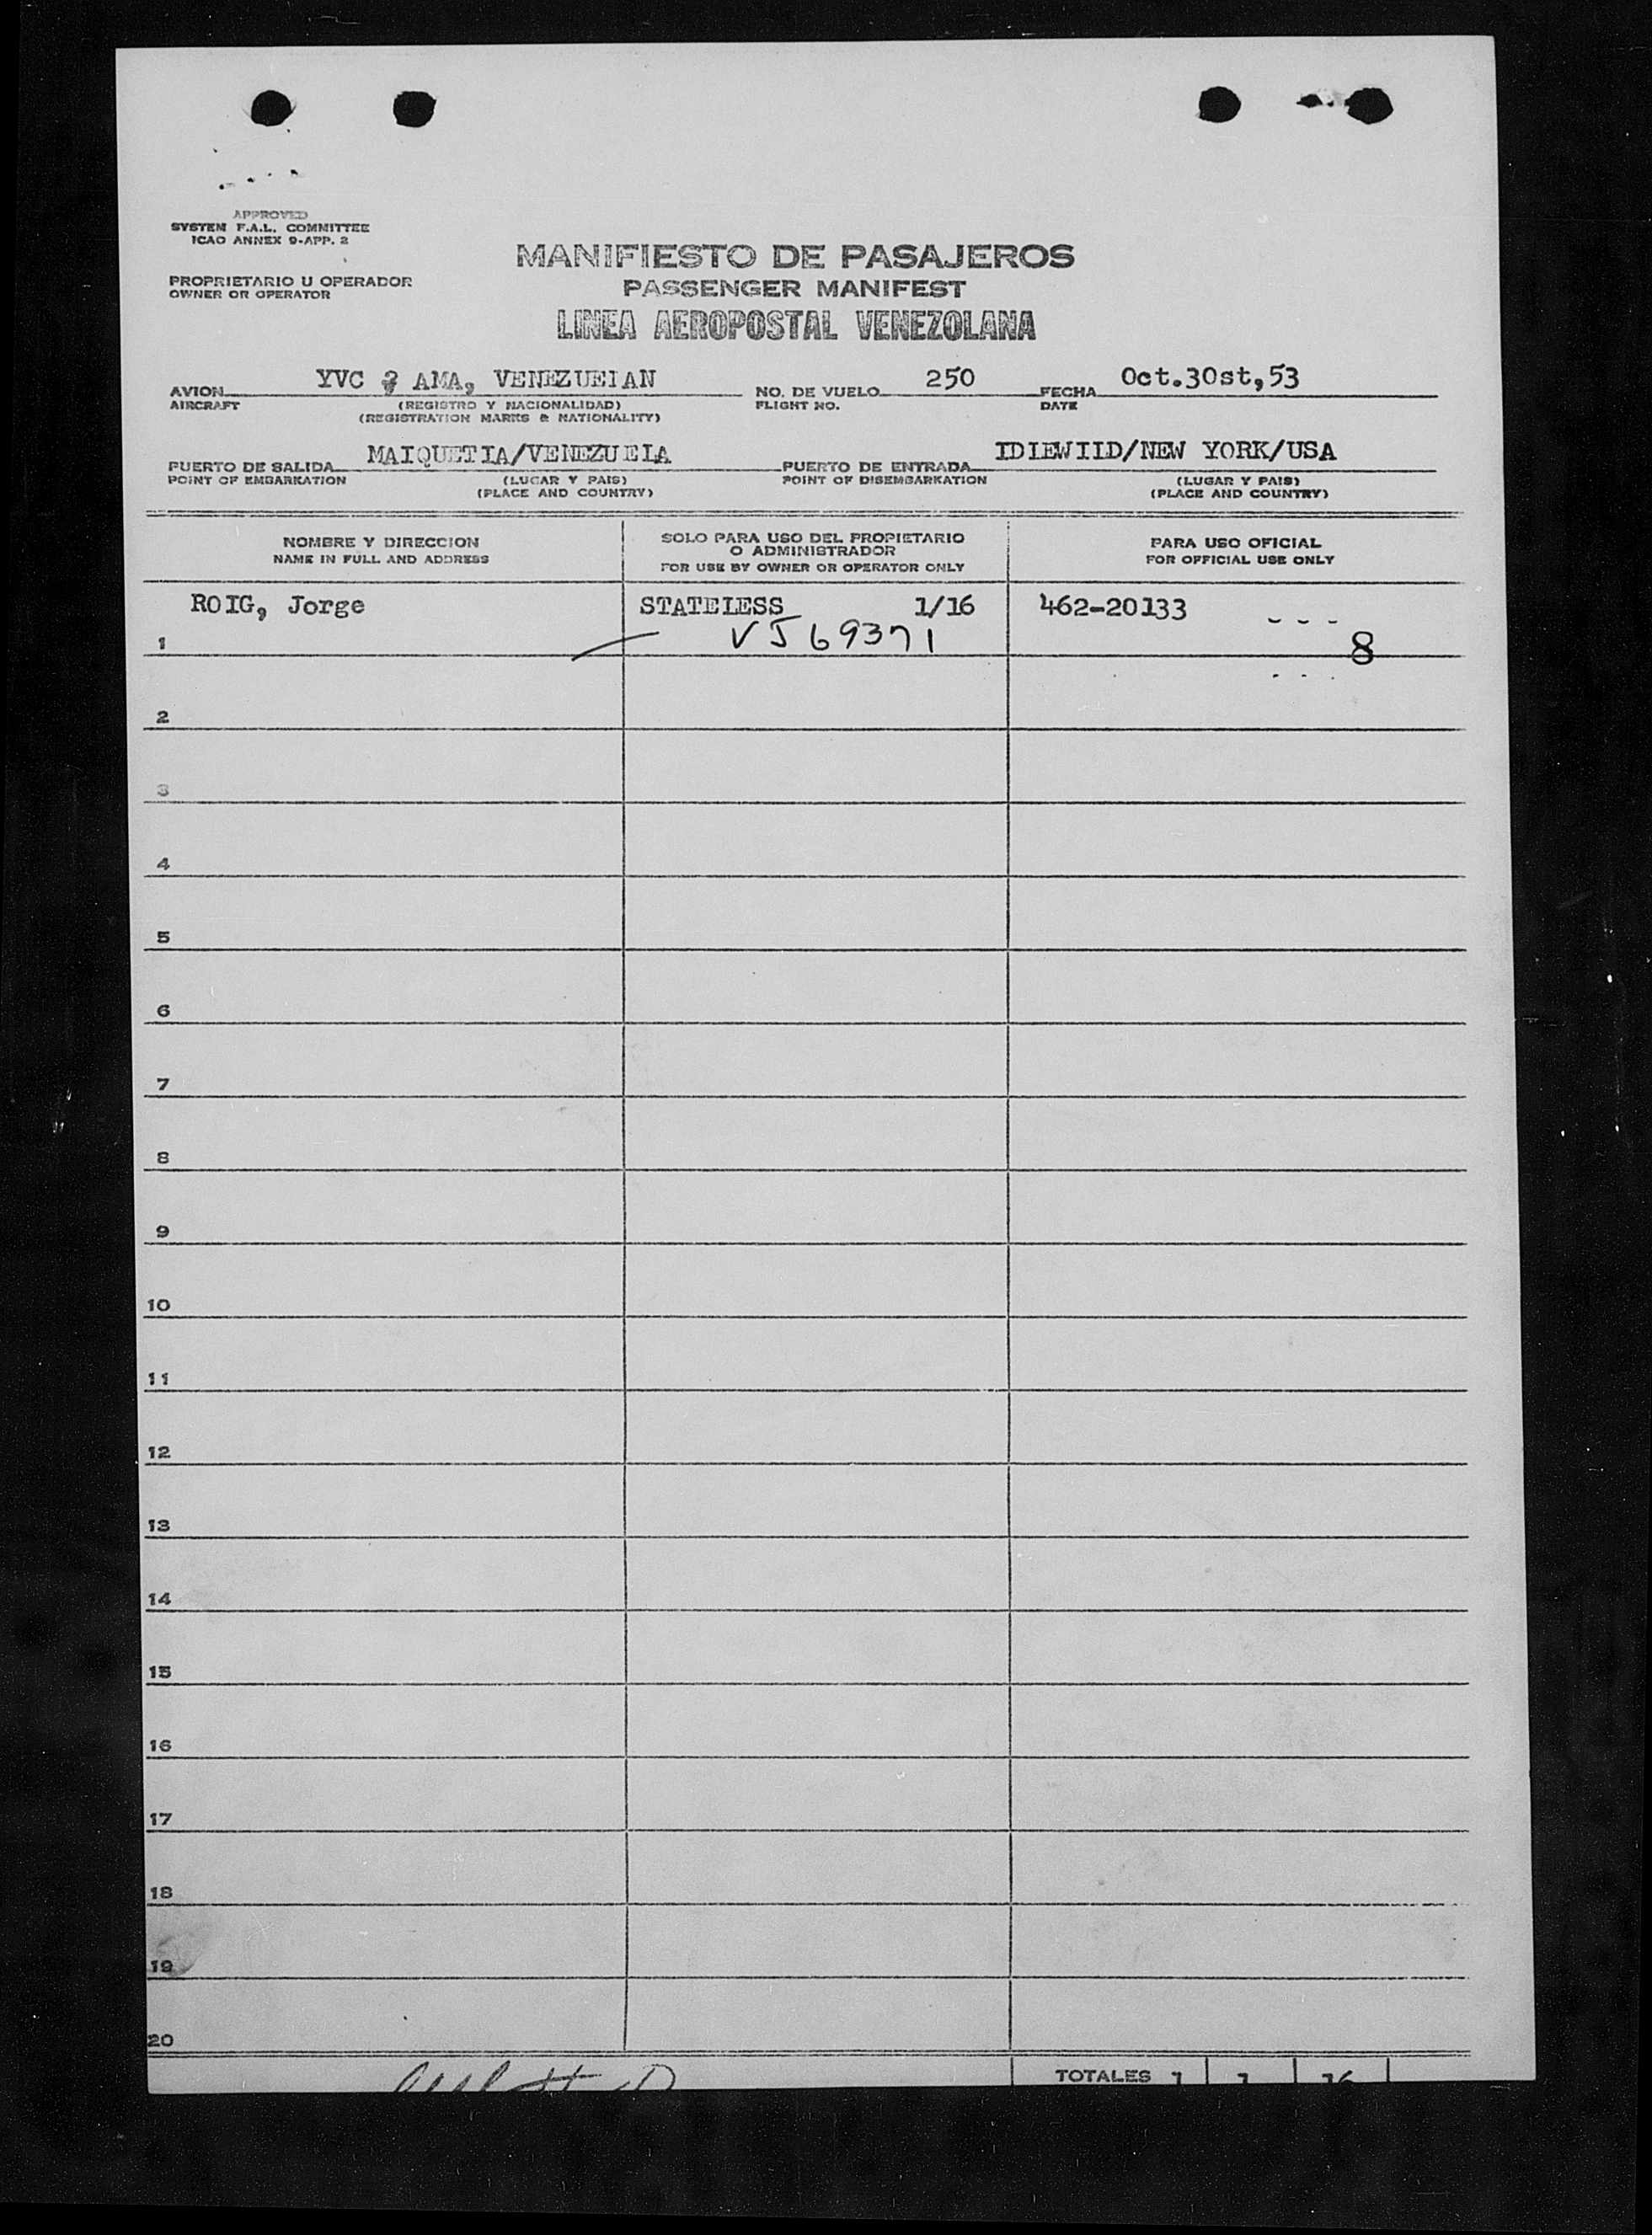 APPROVED
SYSTEM F.A.L. COMMITTEE
ICAO ANNEX 9-APP. 2
PROPRIETARIO U OPERADOR
OWNER OR OPERATOR
MANIFIESTO DE PASAJEROS
PASSENGER MANIFEST
LINEA AEROPOSTAL VENEZOLANA
AVION YVC AMA, VENEZUELAN NO. DE VUELO 250 FECHA Oct.30st,53
AIRCRAFT (REGISTRO Y NACIONALIDAD) FLIGHT NO. DATE
(REGISTRATION MARKS & NATIONALITY)
PUERTO DE SALIDA MAIQUETIA/VENEZUELA PUERTO DE ENTRADA IDLEWILD/NEW YORK/USA
POINT OF EMBARKATION (LUGAR Y PAIS) POINT OF DISEMBARKATION (LUGAR Y PAIS)
(PLACE AND COUNTRY) (PLACE AND COUNTRY)
NOMBRE Y DIRECCION
NAME IN FULL AND ADDRESS
SOLO PARA USO DEL PROPIETARIO
O ADMINISTRADOR
FOR USE BY OWNER OR OPERATOR ONLY
PARA USO OFICIAL
FOR OFFICIAL USE ONLY
ROIG, Jorge STATELESS 1/16 462-20133
1 V J 69371 8
2
3
4
5
6
7
8
9
10
11
12
13
14
15
16
17
18
19
20
TOTALES 1 1 16